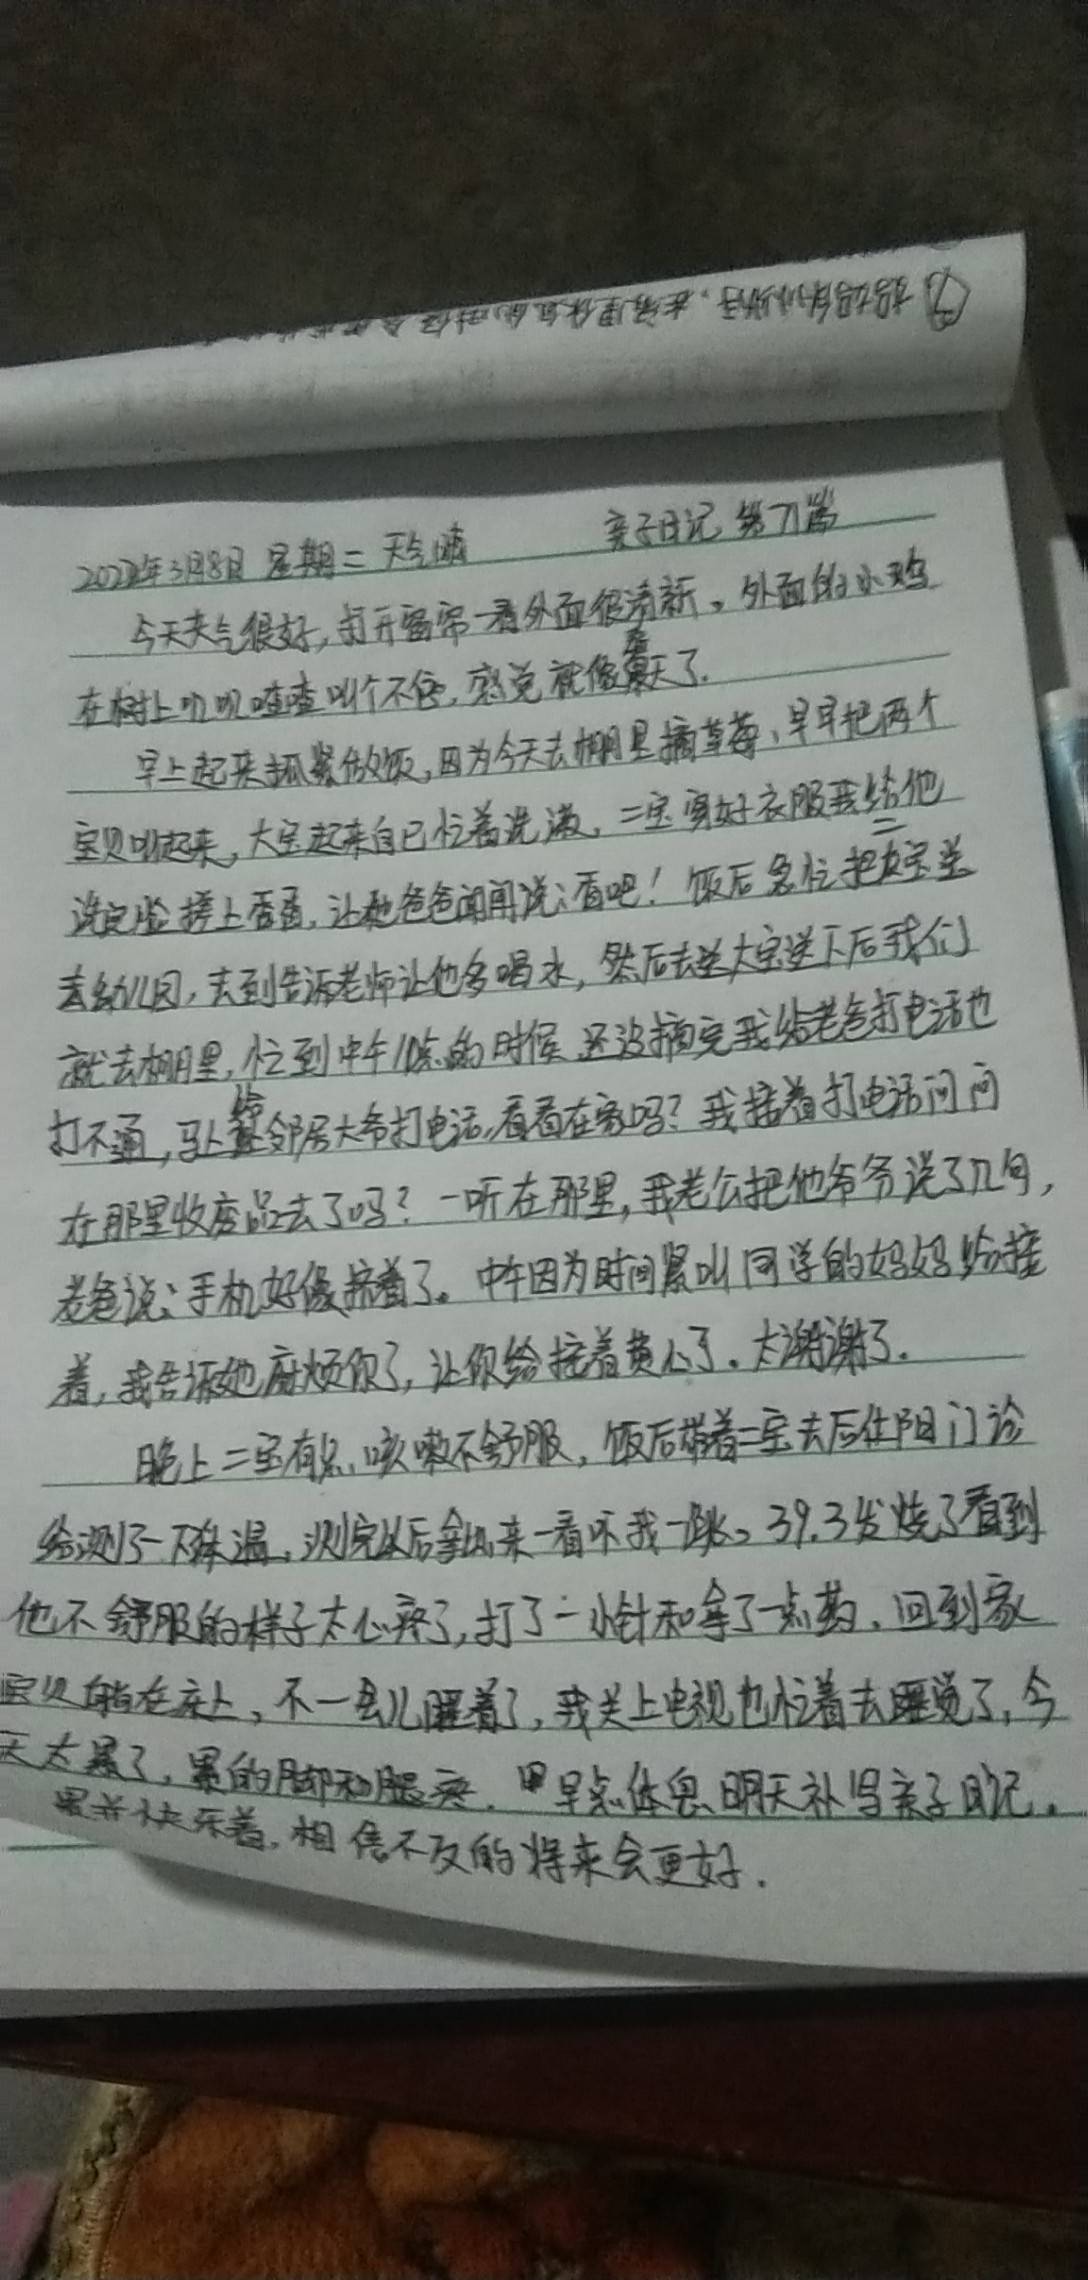 2022年3月8日 星期二 天气晴 亲子日记 第71篇
今天天气很好,打开窗帘一看外面很清新。外面的小鸡
在树上叽叽喳喳叫个不停,感觉就像春天了.
早上起来抓紧做饭,因为今天去棚里摘草莓,早早把两个
宝贝叫起来,大宝起来自己忙着洗漱,二宝穿好衣服我给他
洗完脸搽上香香,让她爸爸闻闻说:香吧!饭后急忙把二宝送
去幼儿园,去到告诉老师让他多喝水,然后去送大宝送下后我们
就去棚里,忙到中午1点的时候还没摘完我给老爸打电话也
打不通,马上给邻居大爷打电话,看看在家吗?我接着打电话问问
在那里收废品去了吗?一听在那里,我老公把他爷爷说了几句,
老爸说:手机好像按着了。中午因为时间紧叫同学的妈妈给接
着,我告诉她麻烦你了,让你给接着费心了。太谢谢了.
晚上二宝有点咳嗽不舒服,饭后带着二宝去后仕阳门诊
给测了一下体温,测完以后拿出来一看吓我一跳。39.3发烧了看到
他不舒服的样子太心疼了,打了一小针和拿了一点药,回到家
宝贝躺在床上,不一会儿睡着了,我关上电视也忙着去睡觉了,今
天太累了,累的脚和腿疼.早点休息明天补写亲子日记。
累并快乐着,相信不久的将来会更好.